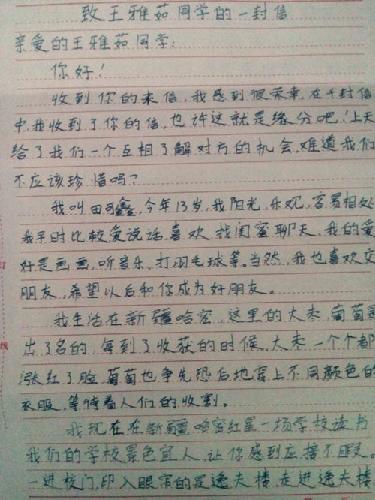 致王雅茹同学的一封信
亲爱的王雅茹同学:
你好!
收到你的来信,我感到很荣幸,在千封信
中,我收到了你的信,也许这就是缘分吧!上天
给了我们一个互相了解对方的机会,难道我们
不应该珍惜吗?
我叫田鑫,今年13岁,我阳光,乐观,容易相处
我平时比较爱说话,喜欢找闺蜜聊天,我的爱
好是画画,听音乐,打羽毛球等。当然,我也喜欢交
朋友,希望以后和你成为好朋友。
我生活在新疆哈密,这里的大枣,葡萄是
出了名的,每到了收获的时候,大枣一个个都
涨红了脸,葡萄也争先恐后地穿上不同颜色的
衣服,等待着人们的收割。
我现在在新疆哈密红星一场学校读书
我们的学校景色宜人,让你感到应接不暇。
一进校门,印入眼帘的是逸夫楼,走进逸夫楼